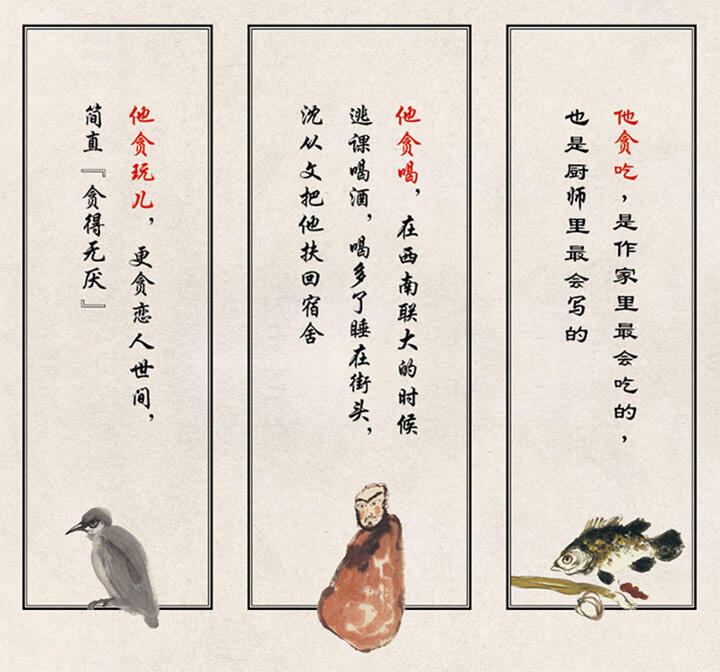 他贪吃，是作家里最会吃的，
也是厨师里最会写的
他贪喝，在西南联大的时候
逃课喝酒，喝多了睡在街头，
沈从文把他扶回宿舍
他贪玩儿，更贪恋人世间，
简直『贪得无厌』